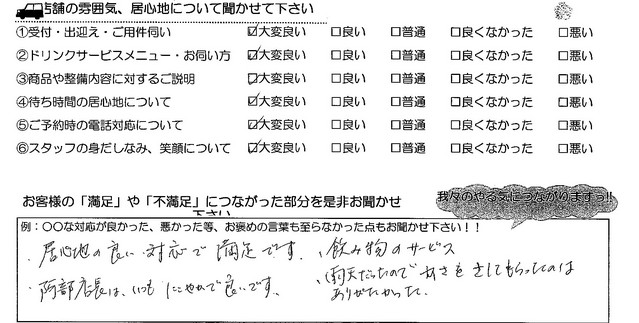 店舗の雰囲気、居心地について聞かせて下さい
①受付・出迎え・ご用件伺い ☑大変良い □良い □普通 □良くなかった □悪い
②ドリンクサービスメニュー・お伺い方 ☑大変良い □良い □普通 □良くなかった □悪い
③商品や整備内容に対するご説明 ☑大変良い □良い □普通 □良くなかった □悪い
④待ち時間の居心地について ☑大変良い □良い □普通 □良くなかった □悪い
⑤ご予約時の電話対応について ☑大変良い □良い □普通 □良くなかった □悪い
⑥スタッフの身だしなみ、笑顔について ☑大変良い □良い □普通 □良くなかった □悪い
お客様の「満足」や「不満足」につながった部分を是非お聞かせ
下さい
我々のやる気につながりますっ!!
例：〇〇な対応が良かった、悪かった等、お褒めの言葉も至らなかった点もお聞かせ下さい！！
・居心地の良い対応で満足です。
・阿部店長は、いつもにこやかで良いです。
・飲み物のサービス
・雨天だったのでかさをさしてもらったのは
ありがたかった。